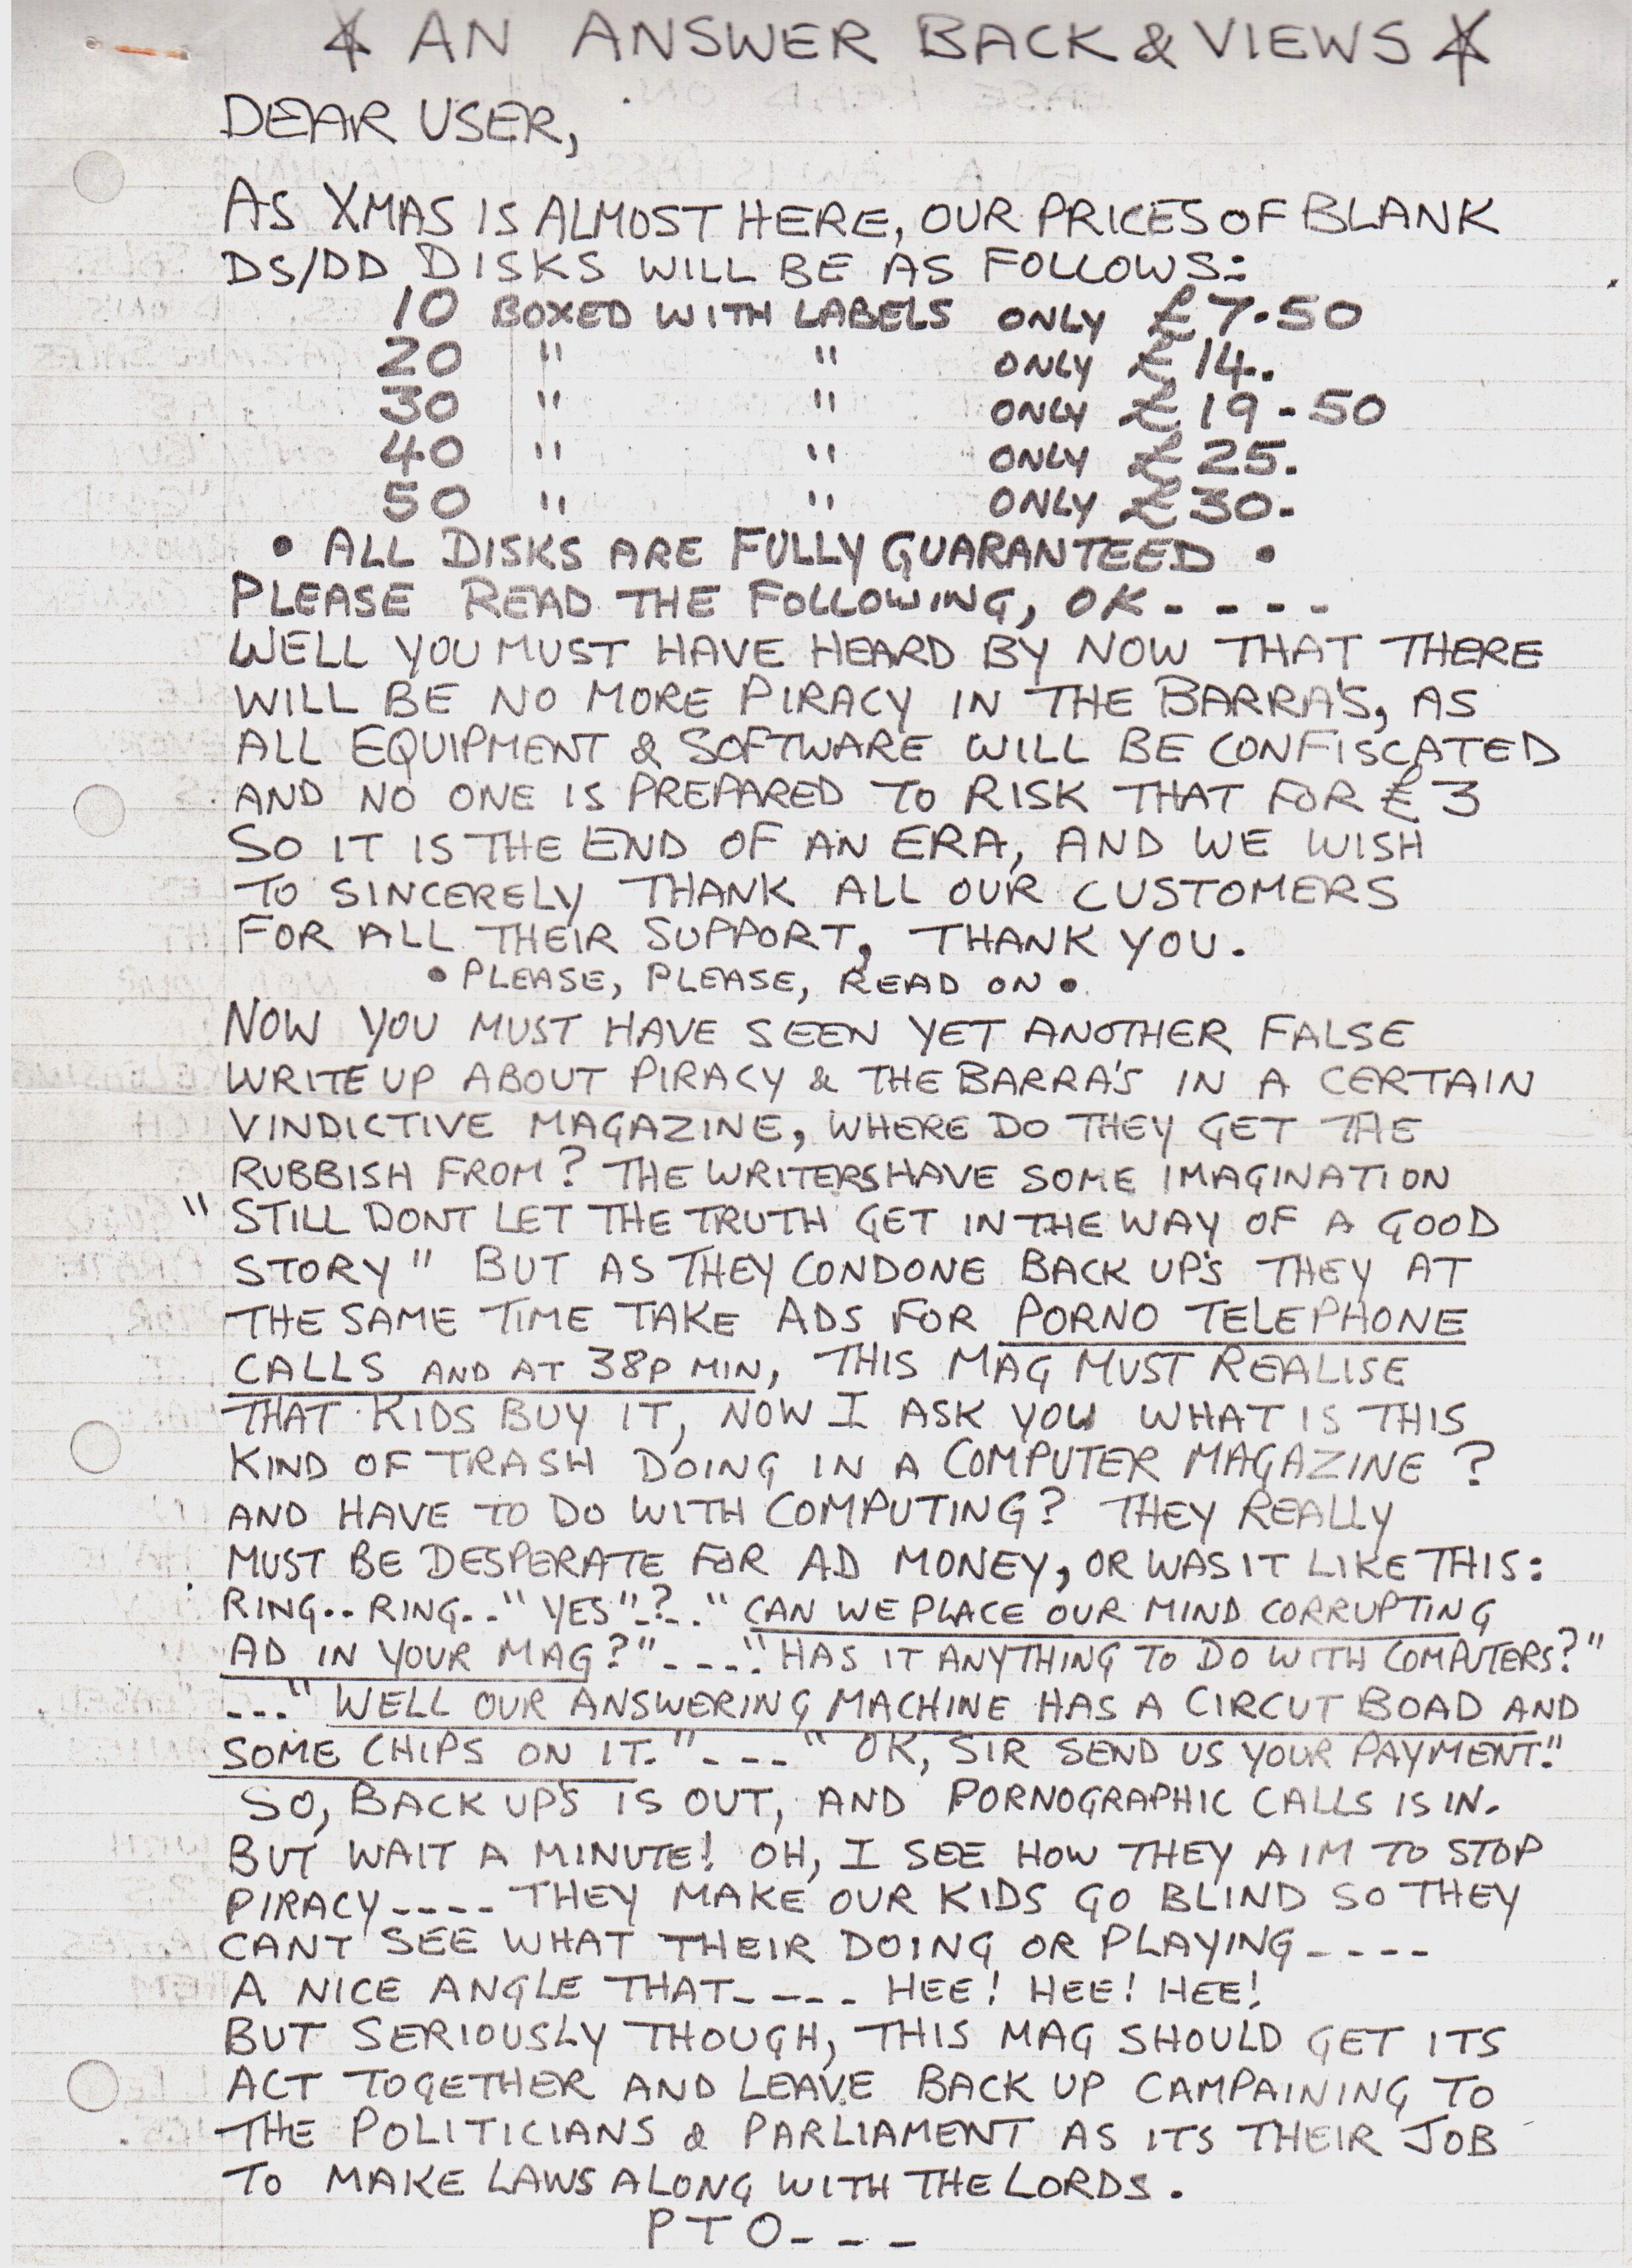 * AN ANSWER BACK & VIEWS *
DEAR USER,
AS XMAS IS ALMOST HERE, OUR PRICES OF BLANK
DS/DD DISKS WILL BE AS FOLLOWS:
10 BOXED WITH LABELS ONLY £7.50
20 " " ONLY £14.
30 " " ONLY £19-50
40 " " ONLY £25.
50 " " ONLY £30-
• ALL DISKS ARE FULLY GUARANTEED •
PLEASE READ THE FOLLOWING, OK----
WELL YOU MUST HAVE HEARD BY NOW THAT THERE
WILL BE NO MORE PIRACY IN THE BARRA'S, AS
ALL EQUIPMENT & SOFTWARE WILL BE CONFISCATED
AND NO ONE IS PREPARED TO RISK THAT FOR £3
SO IT IS THE END OF AN ERA, AND WE WISH
TO SINCERELY THANK ALL OUR CUSTOMERS
FOR ALL THEIR SUPPORT, THANK YOU.
• PLEASE, PLEASE, READ ON •
NOW YOU MUST HAVE SEEN YET ANOTHER FALSE
WRITE UP ABOUT PIRACY & THE BARRA'S IN A CERTAIN
VINDICTIVE MAGAZINE, WHERE DO THEY GET THE
RUBBISH FROM? THE WRITERS HAVE SOME IMAGINATION
"STILL DONT LET THE TRUTH GET IN THE WAY OF A GOOD
STORY" BUT AS THEY CONDONE BACK UP'S THEY AT
THE SAME TIME TAKE ADS FOR PORNO TELEPHONE
CALLS AND AT 38P MIN, THIS MAG MUST REALISE
THAT KIDS BUY IT, NOW I ASK YOU WHAT IS THIS
KIND OF TRASH DOING IN A COMPUTER MAGAZINE?
AND HAVE TO DO WITH COMPUTING? THEY REALLY
MUST BE DESPERATE FOR AD MONEY, OR WAS IT LIKE THIS:
RING.. RING.. "YES"-?-.. "CAN WE PLACE OUR MIND CORRUPTING
AD IN YOUR MAG?"----"HAS IT ANYTHING TO DO WITH COMPUTERS?"
---"WELL OUR ANSWERING MACHINE HAS A CIRCUT BOAD AND
SOME CHIPS ON IT."----"OK, SIR SEND US YOUR PAYMENT."
SO, BACK UP'S IS OUT, AND PORNOGRAPHIC CALLS IS IN.
BUT WAIT A MINUTE! OH, I SEE HOW THEY AIM TO STOP
PIRACY---- THEY MAKE OUR KIDS GO BLIND SO THEY
CANT SEE WHAT THEIR DOING OR PLAYING----
A NICE ANGLE THAT---- HEE! HEE! HEE!
BUT SERIOUSLY THOUGH, THIS MAG SHOULD GET ITS
ACT TOGETHER AND LEAVE BACK UP CAMPAINING TO
THE POLITICIANS & PARLIAMENT AS ITS THEIR JOB
TO MAKE LAWS ALONG WITH THE LORDS.
PTO---